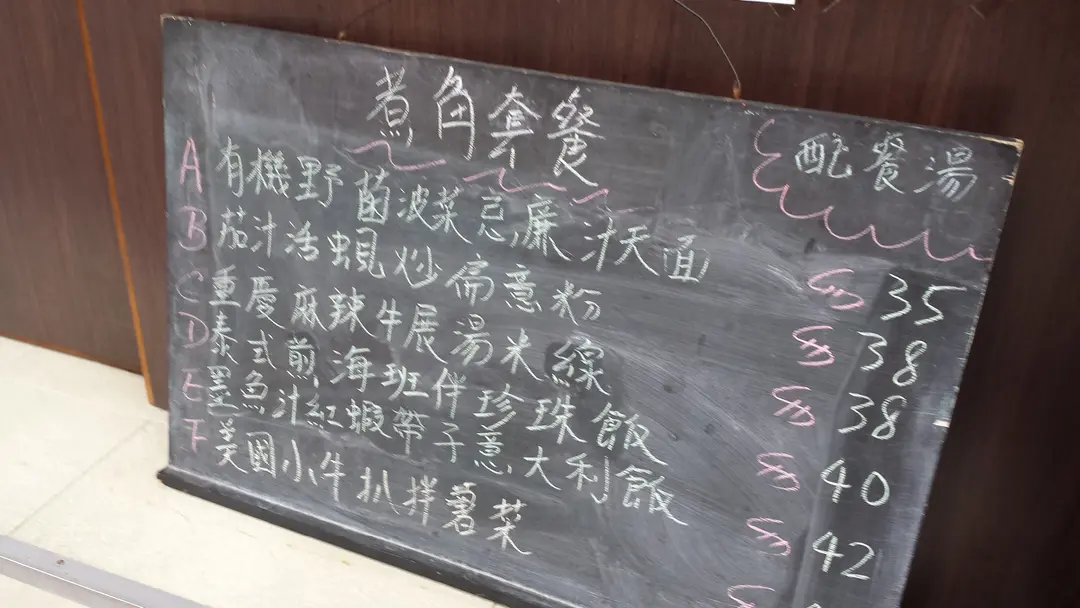 煮角套餐
配餐湯
A 有機野菌波菜忌廉汁天面 35
B 茄汁活蜆炒扁意粉 38
C 重慶麻辣牛展湯米線 38
D 泰式煎海班伴珍珠飯 40
E 墨魚汁紅蝦帶子意大利飯 42
F 美國小牛扒拌薯菜